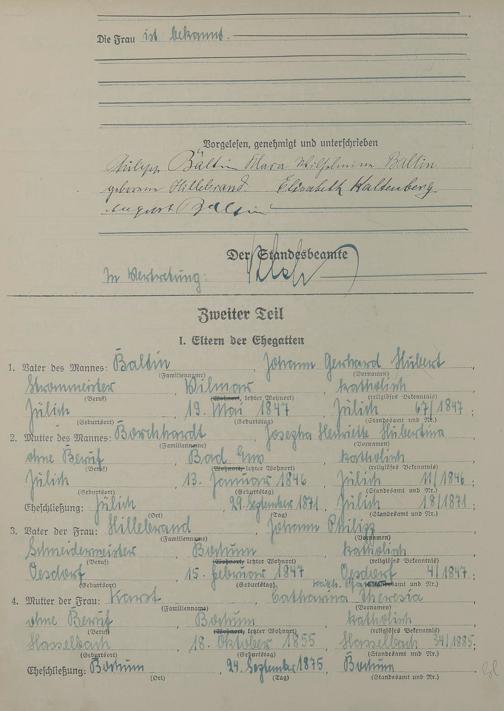 Die Frau ist bekannt.
Vorgelesen, genehmigt und unterschrieben
Philipp Baltin Maria Wilhelmine Baltin
geborene Hillebrand. Elisabeth Kaltenberg.
August Baltin
Der Standesbeamte
In Vertretung:
Zweiter Teil
I. Eltern der Ehegatten
1. Vater des Mannes: Baltin Johann Gerhard Hubert
(Familienname) (Vornamen)
Strommeister, Wilmar, katholisch
(Beruf) (Wohnort, letzter Wohnort) (religiöses Bekenntnis)
Jülich, 19. Mai 1847, Jülich 67/1847;
(Geburtsort) (Geburtstag) (Standesamt und Nr.)
2. Mutter des Mannes: Borchhardt Josepha Henriette Hubertina
(Familienname) (Vornamen)
ohne Beruf, Bad Ems, katholisch
(Beruf) (Wohnort, letzter Wohnort) (religiöses Bekenntnis)
Jülich, 13. Januar 1846, Jülich 11/1846;
(Geburtsort) (Geburtstag) (Standesamt und Nr.)
Eheschließung: Jülich, 29. September 1871, Jülich 18/1871;
(Ort) (Tag) (Standesamt und Nr.)
3. Vater der Frau: Hillebrand Johann Philipp
(Familienname) (Vornamen)
Schneidermeister, Bochum, katholisch
(Beruf) (Wohnort, letzter Wohnort) (religiöses Bekenntnis)
Oesdorf, 15. Februar 1847, Oesdorf 4/1847;
(Geburtsort) (Geburtstag) (Standesamt und Nr.)
4. Mutter der Frau: Karst Catharina Theresia
(Familienname) (Vornamen)
ohne Beruf, Bochum, katholisch
(Beruf) (Wohnort, letzter Wohnort) (religiöses Bekenntnis)
Hasselbach, 18. Oktober 1855, Hasselbach 34/1885;
(Geburtsort) (Geburtstag) (Standesamt und Nr.)
Eheschließung: Bochum, 24. September 1875, Bochum
(Ort) (Tag) (Standesamt und Nr.)